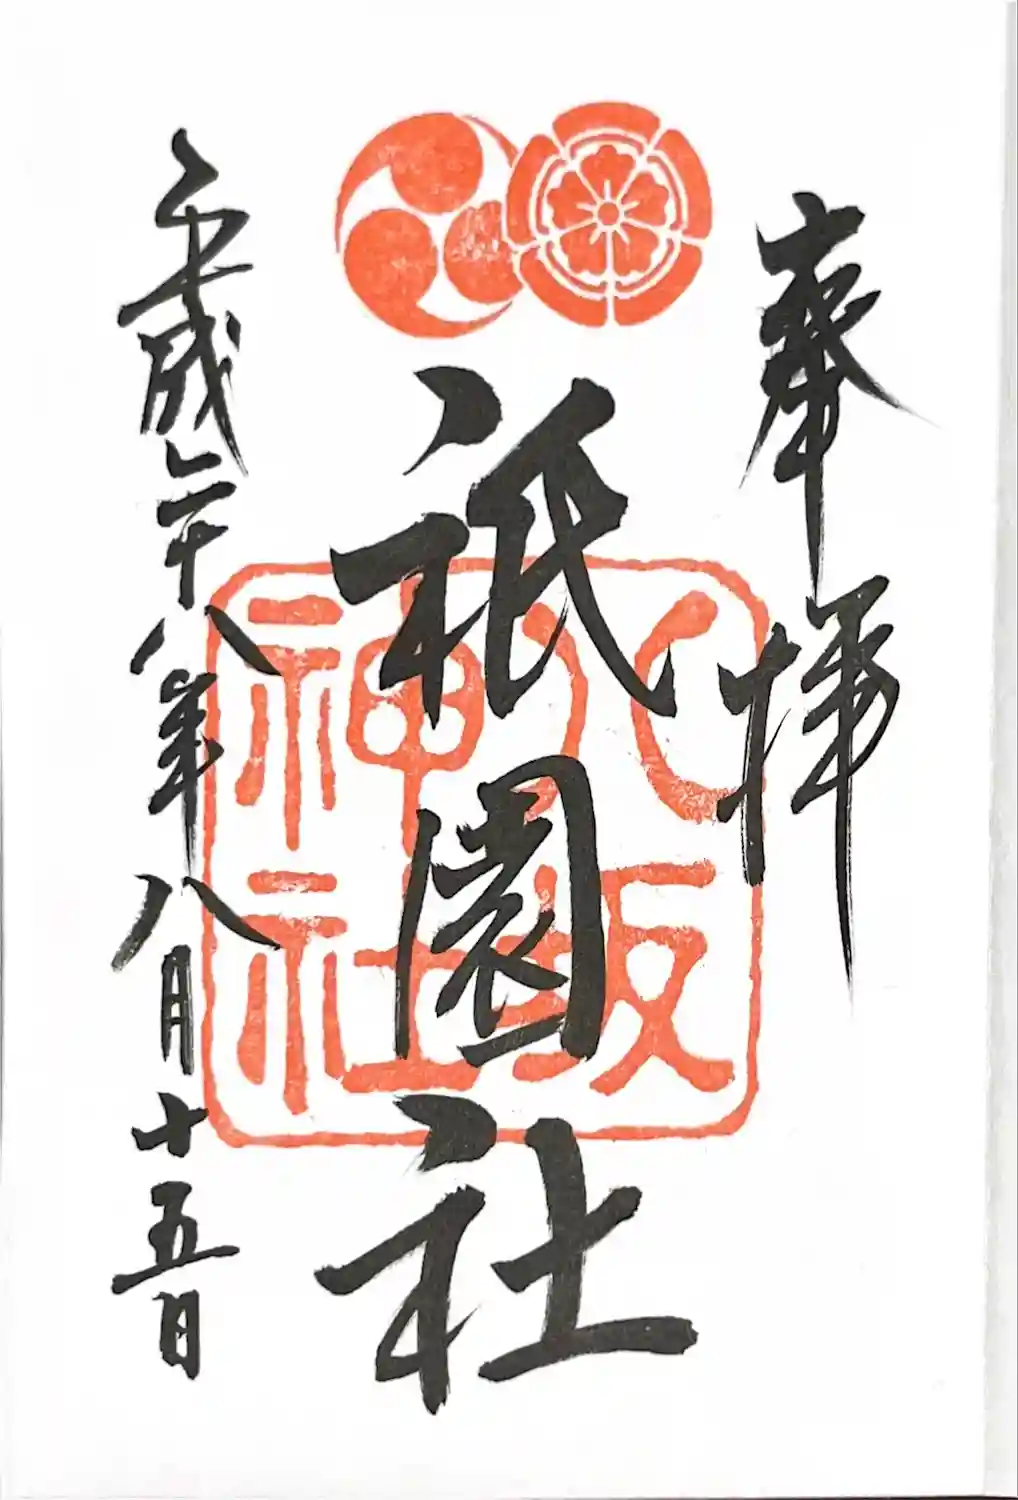 奉拝
八坂
神社
祇園社
平成二十八年八月十五日